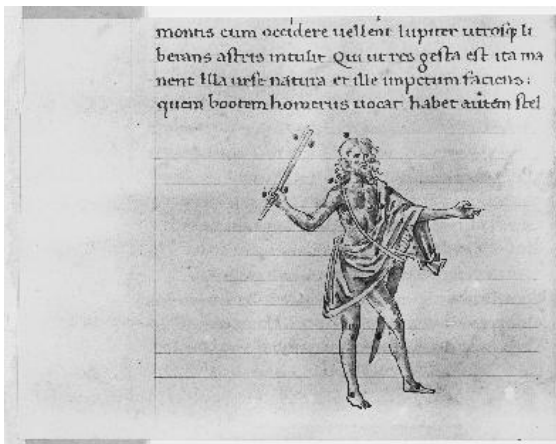 montis cum occidere uellent Iupiter utrosq; li
berans astris intulit Qui ut res gesta est ita ma
nent Illa urse natura et ille impetum faciens:
quem bootem homerus uocat habet autem stel